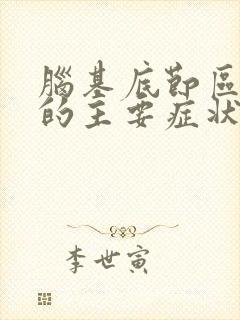 腦基底節區
的主要症狀
李世寅